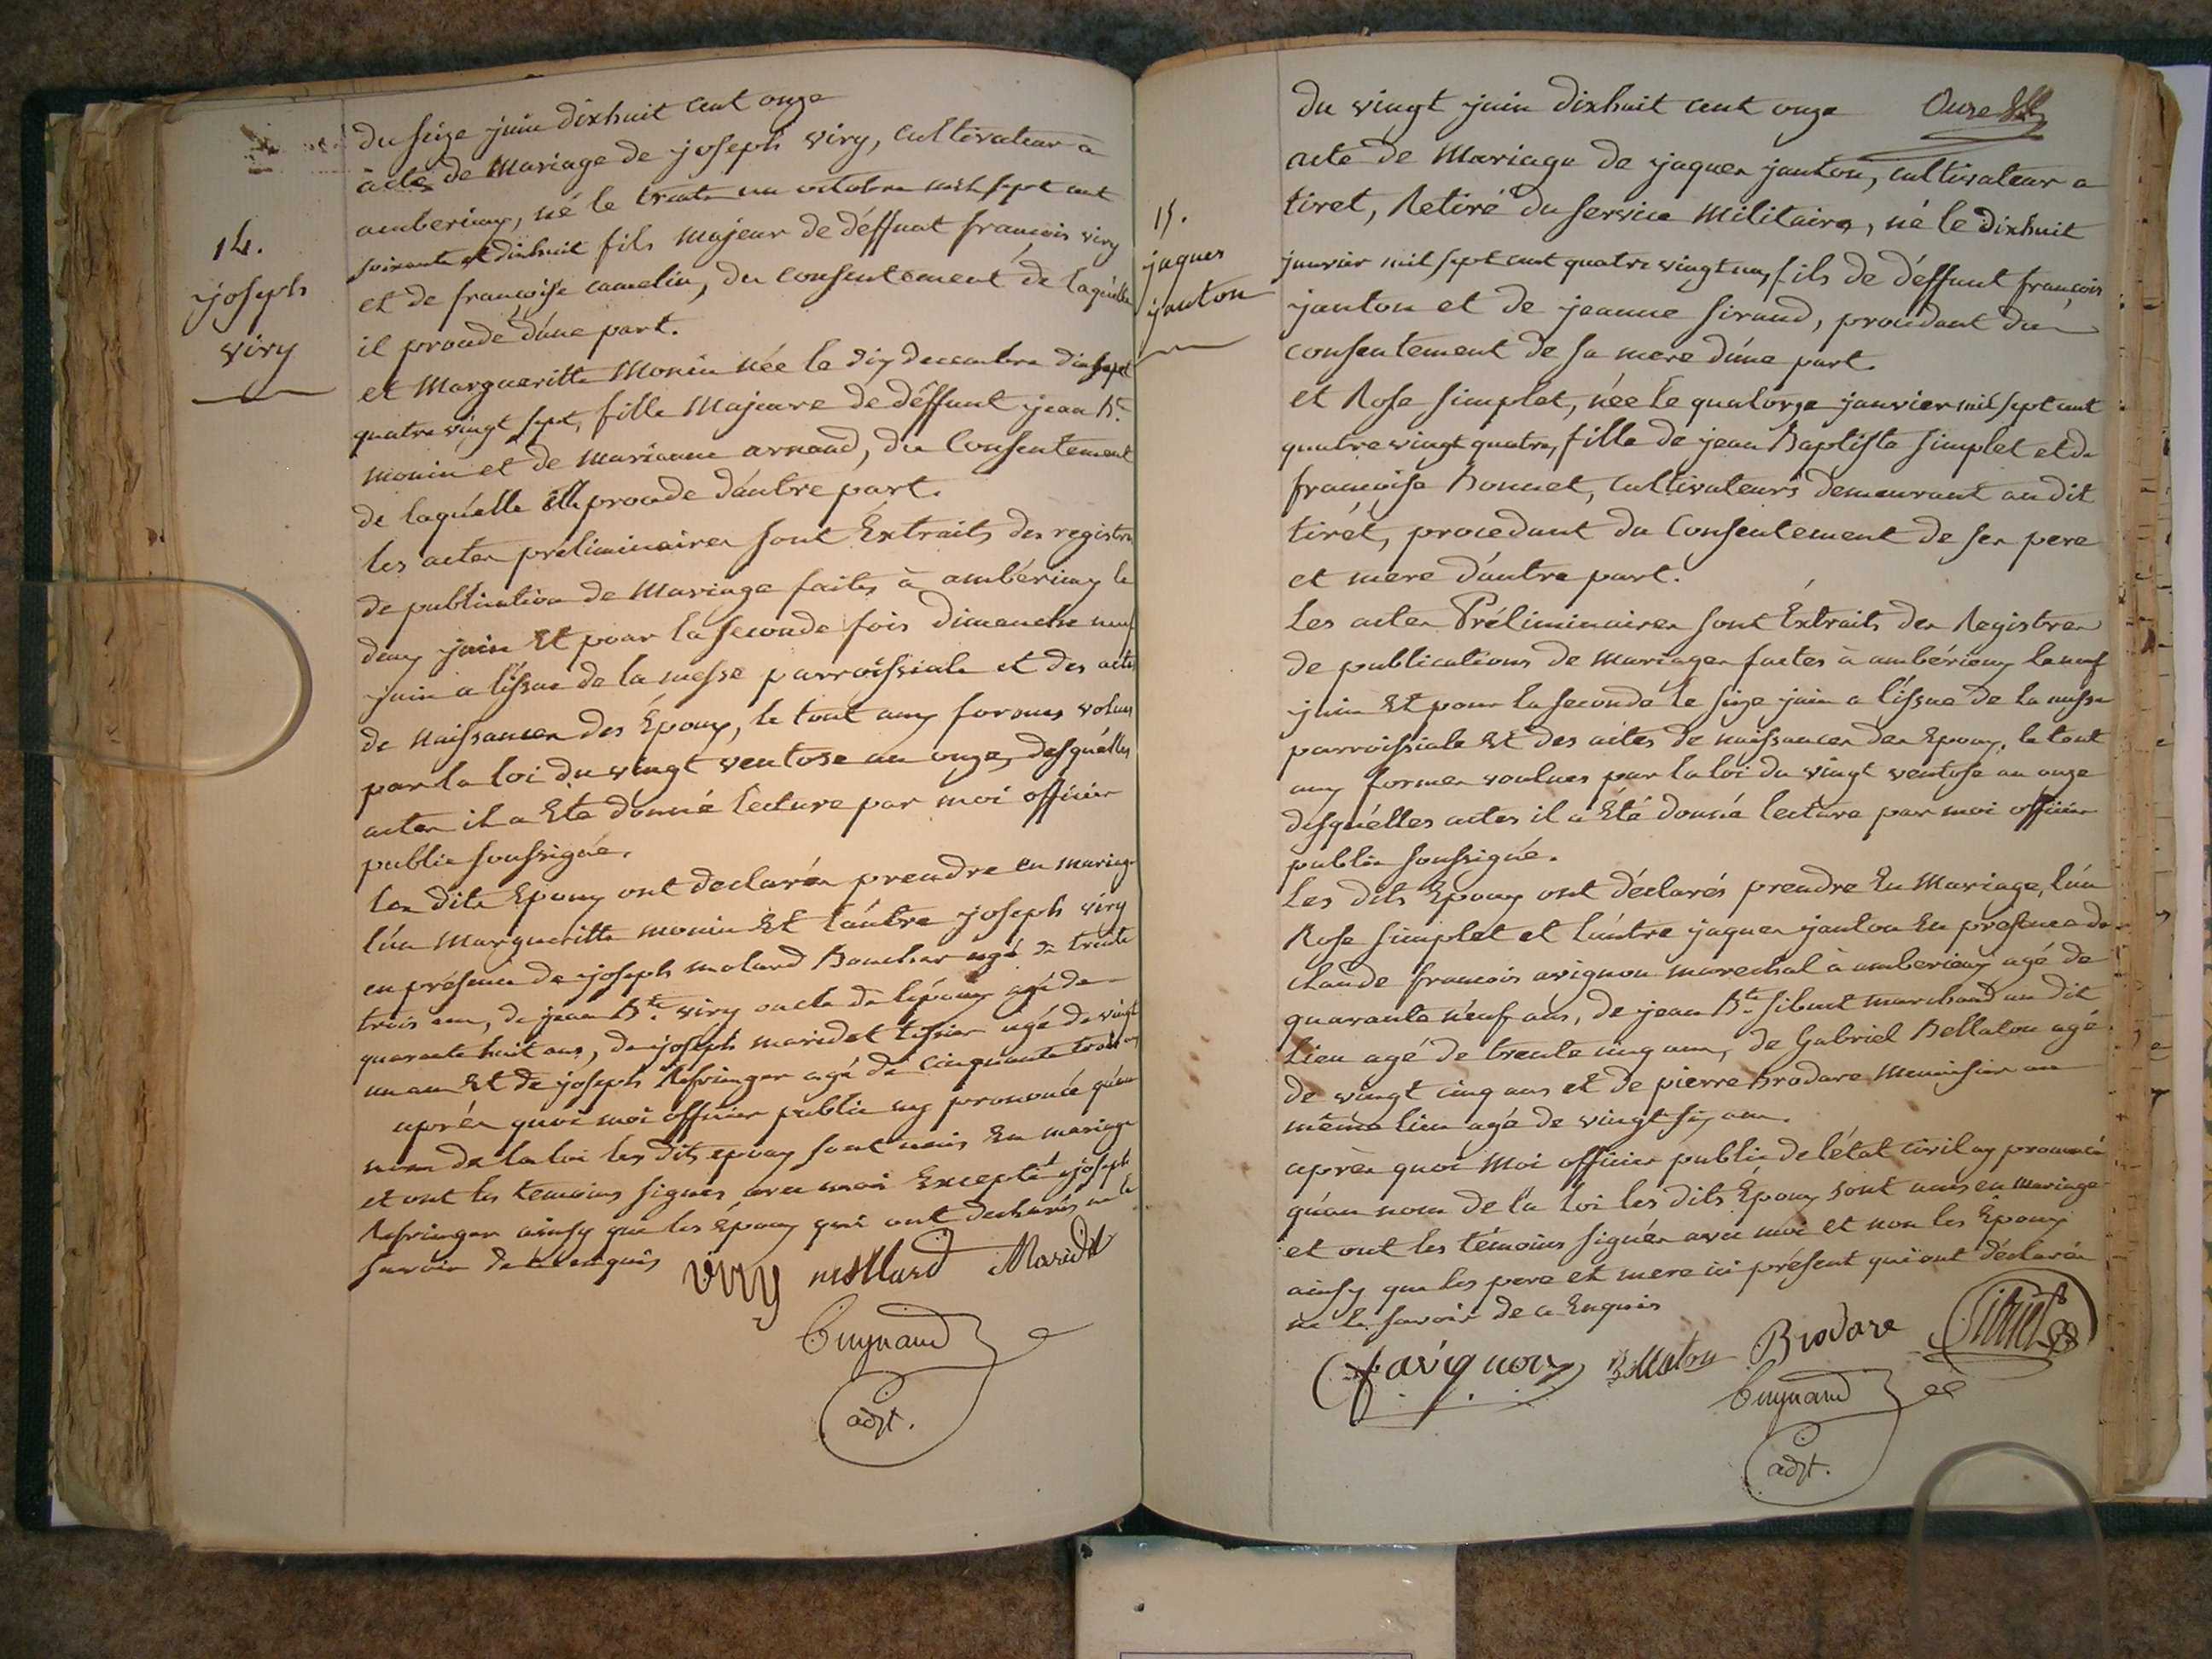 14.
joseph
viry
Du seize juin dixhuit cent onze
acte de Mariage de joseph viry, cultivateur à
amberieux, né le trente un octobre mil sept cent
soixante et dixhuit fils majeur de déffunt françois viry
et de françoise camelin, du consentement de laquélle
il procede d'úne part.
et Margueritte Monin née le dix decembre dixsept
quatre vingt sept, fille Majeure de déffunt jean Bte
monin et de marianne arnaud, du Consentement
de laquélle élle procede d'áutre part.
les actes préliminaires sont Extraits des registres
de publication de Mariage faites à ambérieux le
deux juin Et pour la seconde fois dimanche neuf
juin a l'issue de la messe parroissiale et des actes
de Naissances des Epoux, le tout aux formes volues
par la loi du vingt ventose an onze, desquélles
actes il a Eté donné lecture par moi officier
public soussigné.
les dits Epoux ont declarés prendre en mariage
l'ún Margueritte monin Et l'áutre joseph viry
en présence de joseph molard Boucher agé de trente
trois ans, de jean Bte viry oncle de l'époux agé de
quarante huit ans, de joseph maridet tissier agé de vingt
un an Et de joseph Refringer agé de cinquante trois ans
aprés quoi moi officier public ay prononcé qu'au
nom de la loi les dits epoux sont unis En mariage
et ont les temoins signés avec moi Excepté joseph
Refringer ainsy que les Epoux qui ont declarés ne le
savoir de ce enquis
viry mollard Maridet
Cuynaud
adjt.
15.
jaques
janton
Du vingt juin dixhuit cent onze
Onze
acte de Mariage de jaques janton, cultivateur a
tiret, Retiré du service Militaire, né le dixhuit
janvier mil sept cent quatre vingt un, fils de déffunt françois
janton et de jeanne siraud, procedant du
consentement de sa mere d'úne part.
et Rose simplet, née le quatorze janvier mil sept cent
quatre vingt quatre, fille de jean Baptiste simplet et de
françoise Bonnet, cultivateurs demeurant au dit
tirét, procedant du Consentement de ses pere
et mere d'áutre part.
Les actes Préliminaires sont Extraits des Registres
de publications de mariages faites à ambérieux le neuf
juin Et pour la seconde le seize juin a l'issue de la messe
parroissiale Et des actes de naissances des Epoux, le tout
aux formes voulues par la loi du vingt ventose an onze
desquélles actes il a Eté donné lecture par moi officier
public soussigné.
Les dits Epoux ont déclarés prendre En Mariage, l'ún
Rose simplet et l'áutre jaques janton En présence de
claude françois avignon marechal à amberieux agé de
quarante néuf ans, de jean Bte sibuet marchand au dit
Lieu agé de trente cinq ans, de Gabriel Bellaton agé
de vingt cinq ans et de pierre Brodare Menuisier au
même Lieu agé de vingt six ans.
aprés quoi Moi officier public de l'état civil ay prononcé
qu'au nom de la loi les dits Epoux sont unis en mariage
et ont les témoins signés avec moi et non les Epoux
ainsy que les pere et mere ici présent qui ont déclarés
ne le savoir de ce Enquis
Cf avignon Bellaton Brodare Sibuet
Cuynaud
adjt.